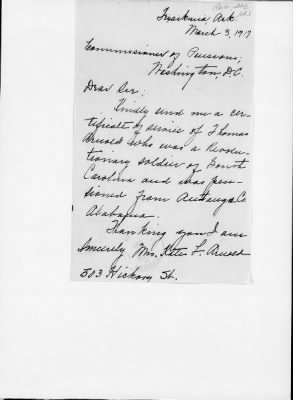 Texarkana, Ark.
March 3, 1917
Commissioner of Pensions,
Washington, D.C.
Dear Sir;
Kindly send me a cer-
tificate of service of Thomas
Arnold who was a Revolu-
tionary soldier of South
Carolina and was pen-
sioned from Autauga Co.
Alabama.
Thanking you I am
Sincerely Mrs. Kate L. Arnold
503 Hickory St.